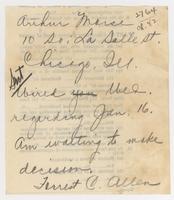 Arthur Morse
10 So. La Salle St.
Chicago, Ill.
Sent
Wired you Wed.
regarding Jan. 16.
Am waiting to make
decision.
Forrest C. Allen